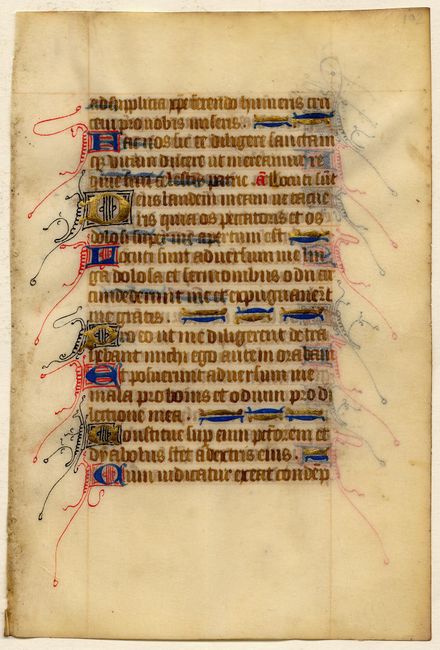 ad suplicia xpe ferendo humeris cru
cem pro nobis miseris.
Fac nos sic te diligere sanctam
q3 vitam ducere ut mereamur
celestis patrie. a Locuti sūt
Deus laudem meam ne tacue
ris quia os peccatoris et os
dolosi super me apertum est
Locuti sunt adversum me lin
gā dolosa et sermonibus odii cir
cumdederūt me et expugnaverūt
me gratis.
Pro eo ut me diligerent detra
hebant michi ego autem orabam
Et posuerunt adversum me
mala pro bonis et odium pro di
lectione mea
Constitue sup eum pctorem et
dyabolus stet a dextris eius.
Cum iudicatur exeat condēp